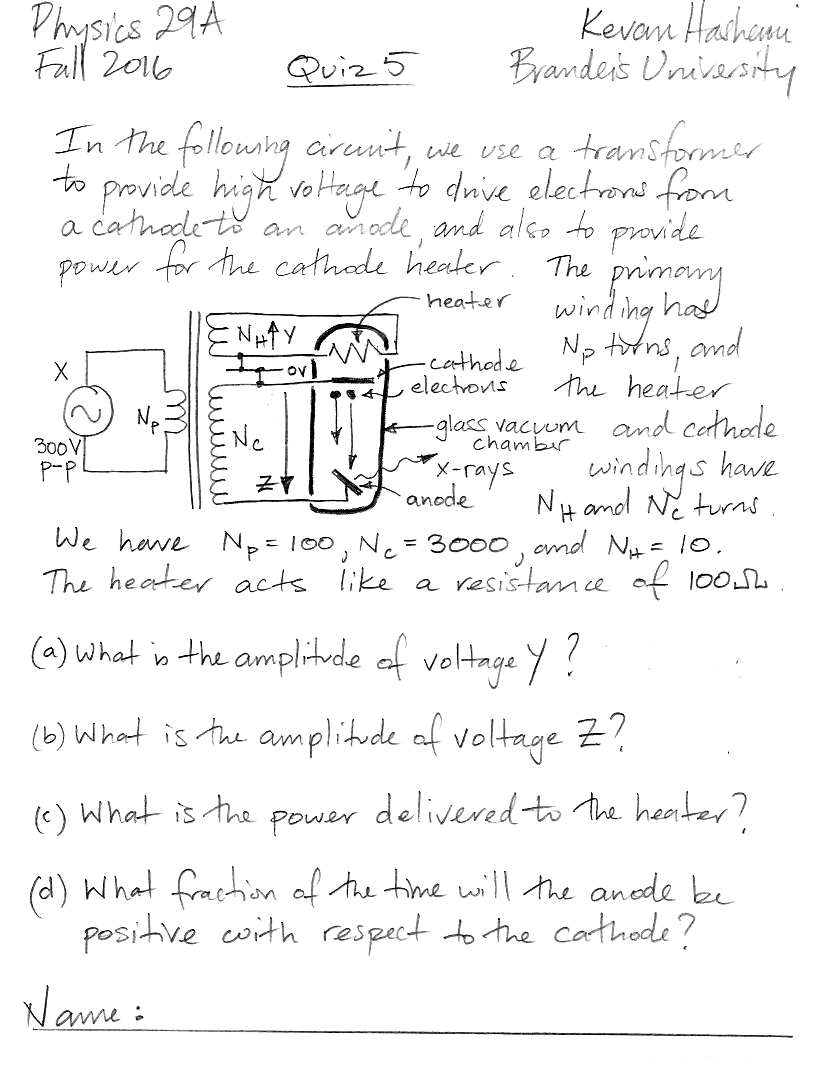 Physics 29A
Kevan Hashemi
Fall 2016
Quiz 5
Brandeis University
In the following circuit, we use a transformer
to provide high voltage to drive electrons from
a cathode to an anode, and also to provide
power for the cathode heater. The primary
winding has
Np turns, and
the heater
and cathode
windings have
NH and Nc turns.
heater
NH Y
cathode
X
0V
electrons
Np
Nc
glass vacuum
chamber
300V
p-p
x-rays
Z
anode
We have Np = 100, Nc = 3000, and NH = 10.
The heater acts like a resistance of 100Ω.
(a) What is the amplitude of voltage Y?
(b) What is the amplitude of voltage Z?
(c) What is the power delivered to the heater?
(d) What fraction of the time will the anode be
positive with respect to the cathode?
Name: